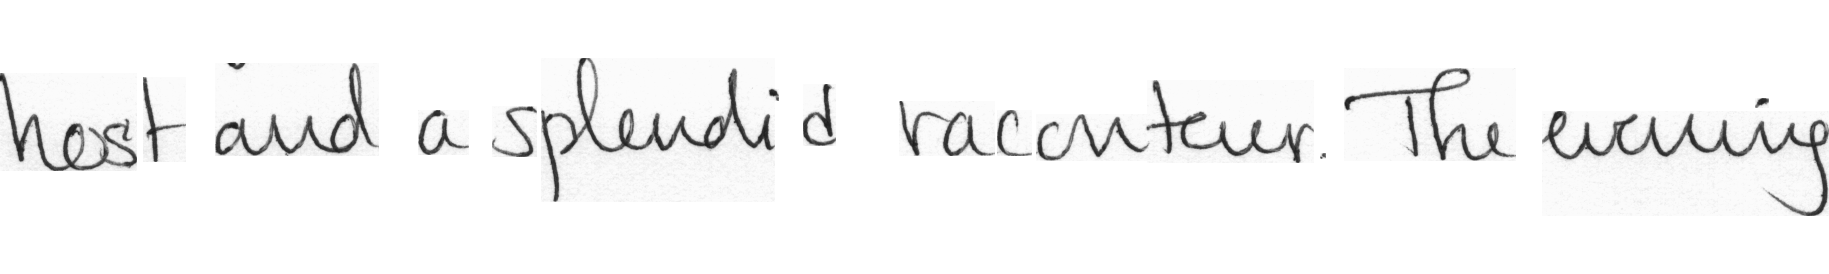 host and a splendid raconteur. The evening